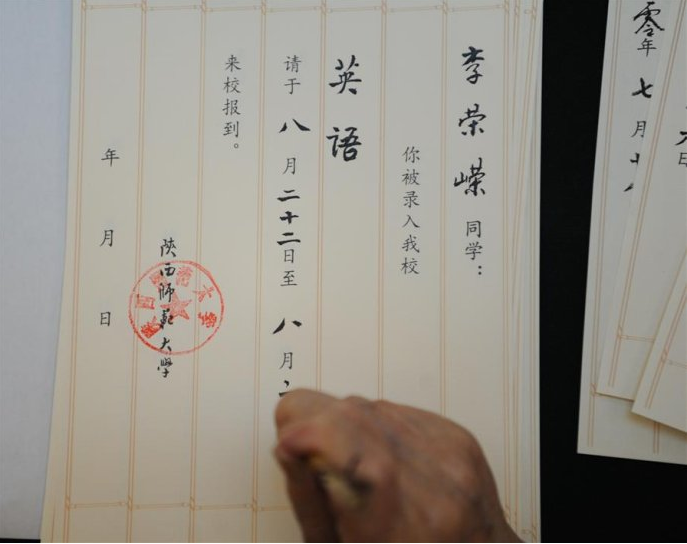 李荣嵘同学：
你被录入我校
英语
请于八月二十二日至八月
来校报到。
陕西师范大学
年月日
零年七月十八